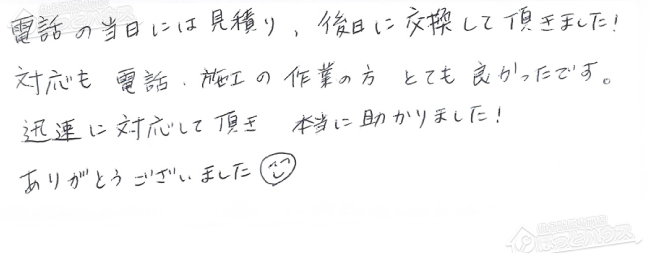 電話の当日には見積り、後日に交換して頂きました!
対応も 電話、施工の作業の方 とても良かったです。
迅速に対応して頂き 本当に助かりました!
ありがとうございました